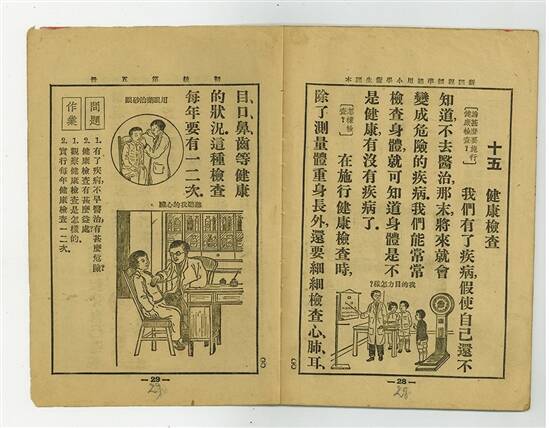 小學衛生課本
十五 健康檢查
爲甚麼要施行
健康檢查?
我們有了疾病,假使自己還不
知道,不去醫治,那末,將來就會
變成危險的疾病.我們能常常
檢查身體,就可知道身體是不
是健康,有沒有疾病了.
怎樣檢
查?
在施行健康檢查時,
除了測量體重身長外,還要細細檢查心、肺、耳、
我的目力怎樣?
— 28 —
28
初級第五冊
目、口、鼻、齒等健康
的狀況.這種檢查
每年要有一二次.
用眼藥治砂眼
聽聽我的心臟
問題
1. 有了疾病,不早醫治,有甚麼危險?
2. 健康檢查有甚麼益處?
作業
1. 觀察健康檢查是怎樣的.
2. 實行每年健康檢查一二次.
— 29 —
29